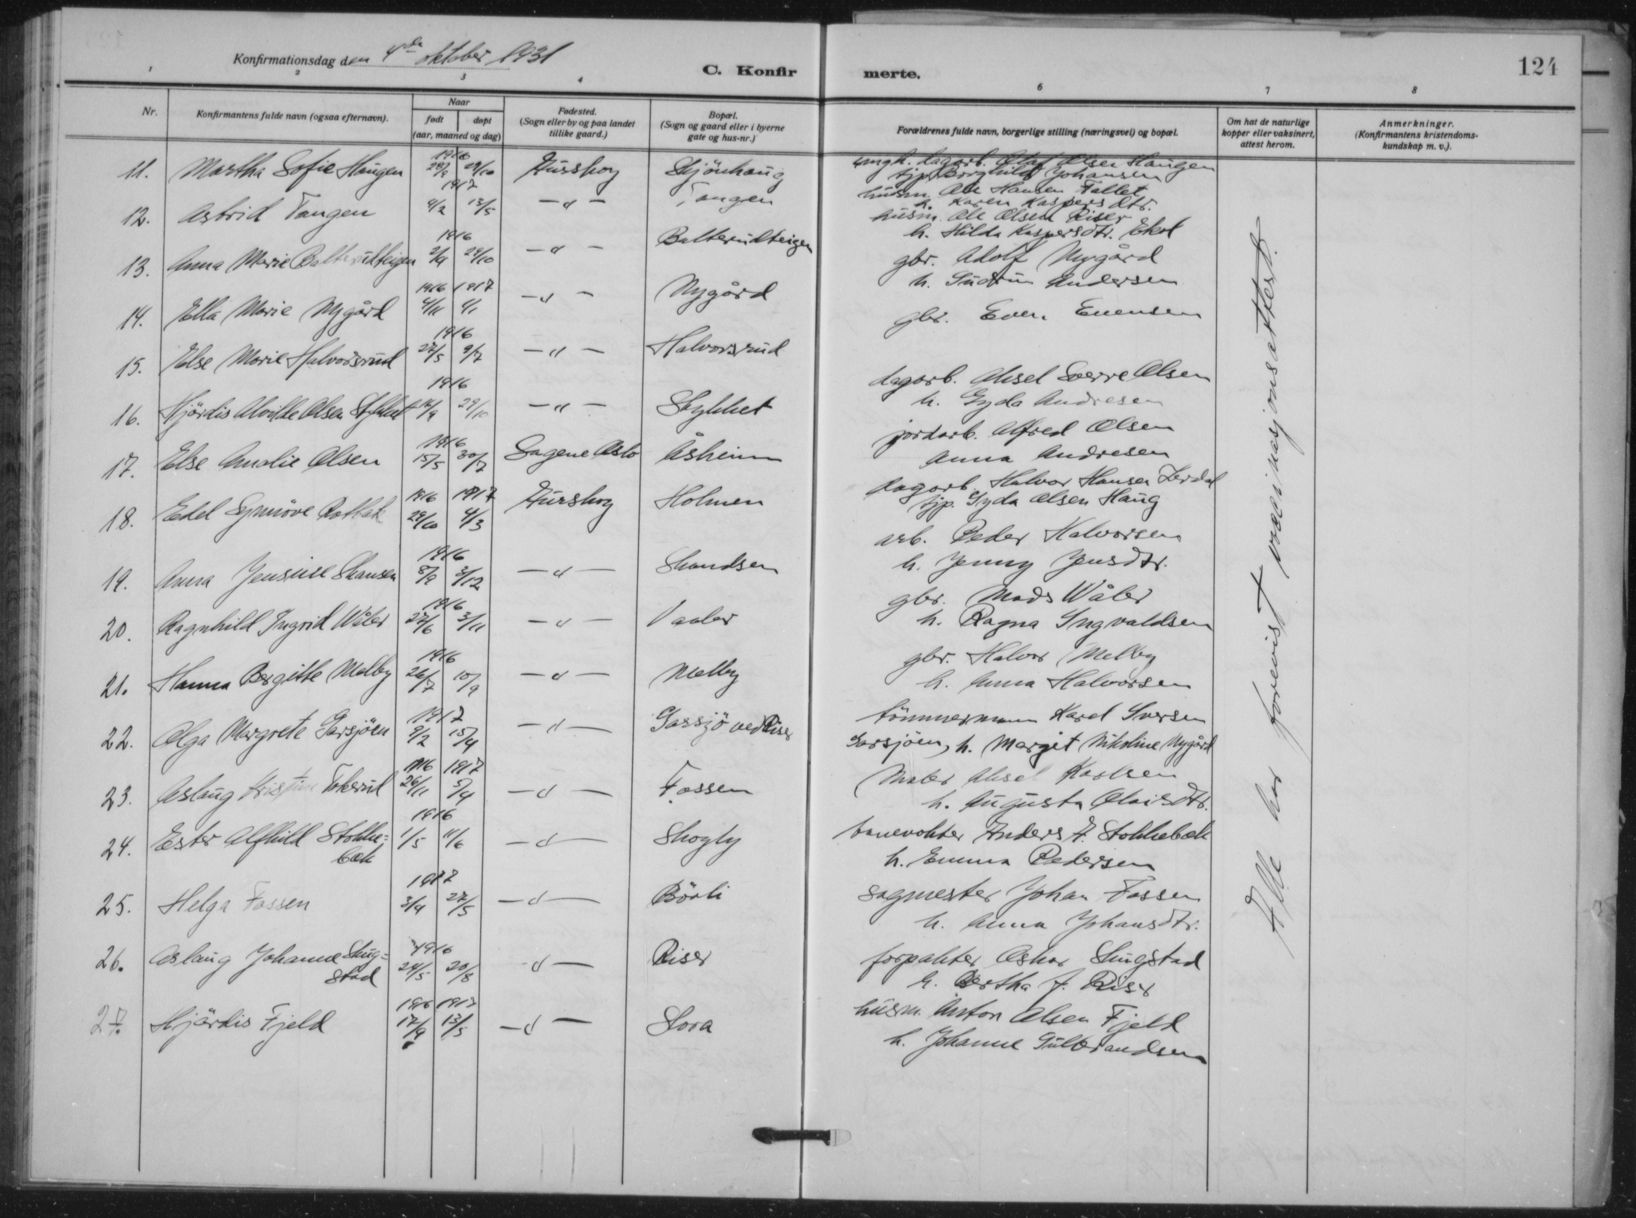 Konfirmationsdag den 4de oktober 1931
C. Konfirmerte.
124
1 2 3 4 5 6 7 8
Nr.
Konfirmantens fulde navn (ogsaa efternavn).
Naar
født døpt
(aar, maaned og dag)
Fødested.
(Sogn eller by og paa landet
tillike gaard.)
Bopæl.
(Sogn og gaard eller i byerne
gate og hus-nr.)
Forældrenes fulde navn, borgerlige stilling (næringsvei) og bopæl.
Om hat de naturlige
kopper eller vaksinert,
attest herom.
Anmerkninger.
(Konfirmantens kristendoms-
kundskap m. v.).
11. Martha Sofie Haugen 1916 29/10 Hurskog Skjönhaug
ungk. dagarb. Olaf Olsen Haugen
pjp. Borghild Johansen
12. Astrid Tangen 1917 4/2 13/5 —"— Tangen
husm. Ole Hansen Fallet
h. Karen Kaspers dtr.
13. Anna Marie Balterudteigen 1916 29/10 —"— Balterudteigen
husm. Ole Olsen Riser
h. Hilda Kaspersdtr. Ekol
14. Ella Marie Nygård 1916 1917 4/11 4/1 —"— Nygård
gbr. Adolf Nygård
h. Gudrun Andersen
15. Else Marie Halvorsrud 1916 9/7 —"— Halvorsrud
gbr. Even Evensen
16. Hjördis Alvilde Olsen 1916 29/10 —"— Stykket
dagarb. Aksel Sverre Olsen
h. Gyda Andresen
17. Else Amalie Olsen 1916 15/5 30/7 Sagene Oslo Åsheim
jordarb. Alfred Olsen
Anna Andresen
18. Edel Synnöve 1916 1917 29/10 4/3 Hurskog Holmen
dagarb. Halvor Hansen
pjp. Gyda Olsen Haug
19. Anna Jensine Skansen 1916 8/9 3/12 —"— Skandsen
arb. Peder Halvorsen
h. Jenny Jensdtr.
20. Ragnhild Ingrid Wåler 1916 27/6 5/11 —"— Vaaler
gbr. Mads Wåler
h. Ragna Ingvaldsen
21. Hanna Bergithe Melby 1916 26/7 10/9 —"— Melby
gbr. Halvor Melby
h. Anna Halvorsen
22. Olga Margrete Garsjöen 1917 9/2 15/4 —"— Garsjö ved Riser
tömmermann Karel Iversen
Garsjöen, h. Margit Nikoline Nygård
23. Aslaug Kristine 1916 1917 26/11 5/4 —"— Fossen
Maler Aksel Karlsen
h. Augusta Olaisdtr.
24. Ester Alfhild Stokke=
bæk 1916 1/5 11/6 —"— Skogly
banevokter Anders H. Stokkebæk
h. Emma Pedersen
25. Helga Fossen 1917 3/4 27/5 —"— Börli
sagmester Johan Fossen
h. Anna Johansdtr.
26. Aslaug Johanne Slug=
stad 1916 24/5 20/8 —"— Riser
forpakter Oskar Slugstad
h. Bertha J. Riser
27. Hjördis Fjeld 1916 1917 17/9 13/5 —"— Stora
husm. Anton Olsen Fjeld
h. Johanne Gulbrandsen
Alle har forevist vaccinasjonsattest.